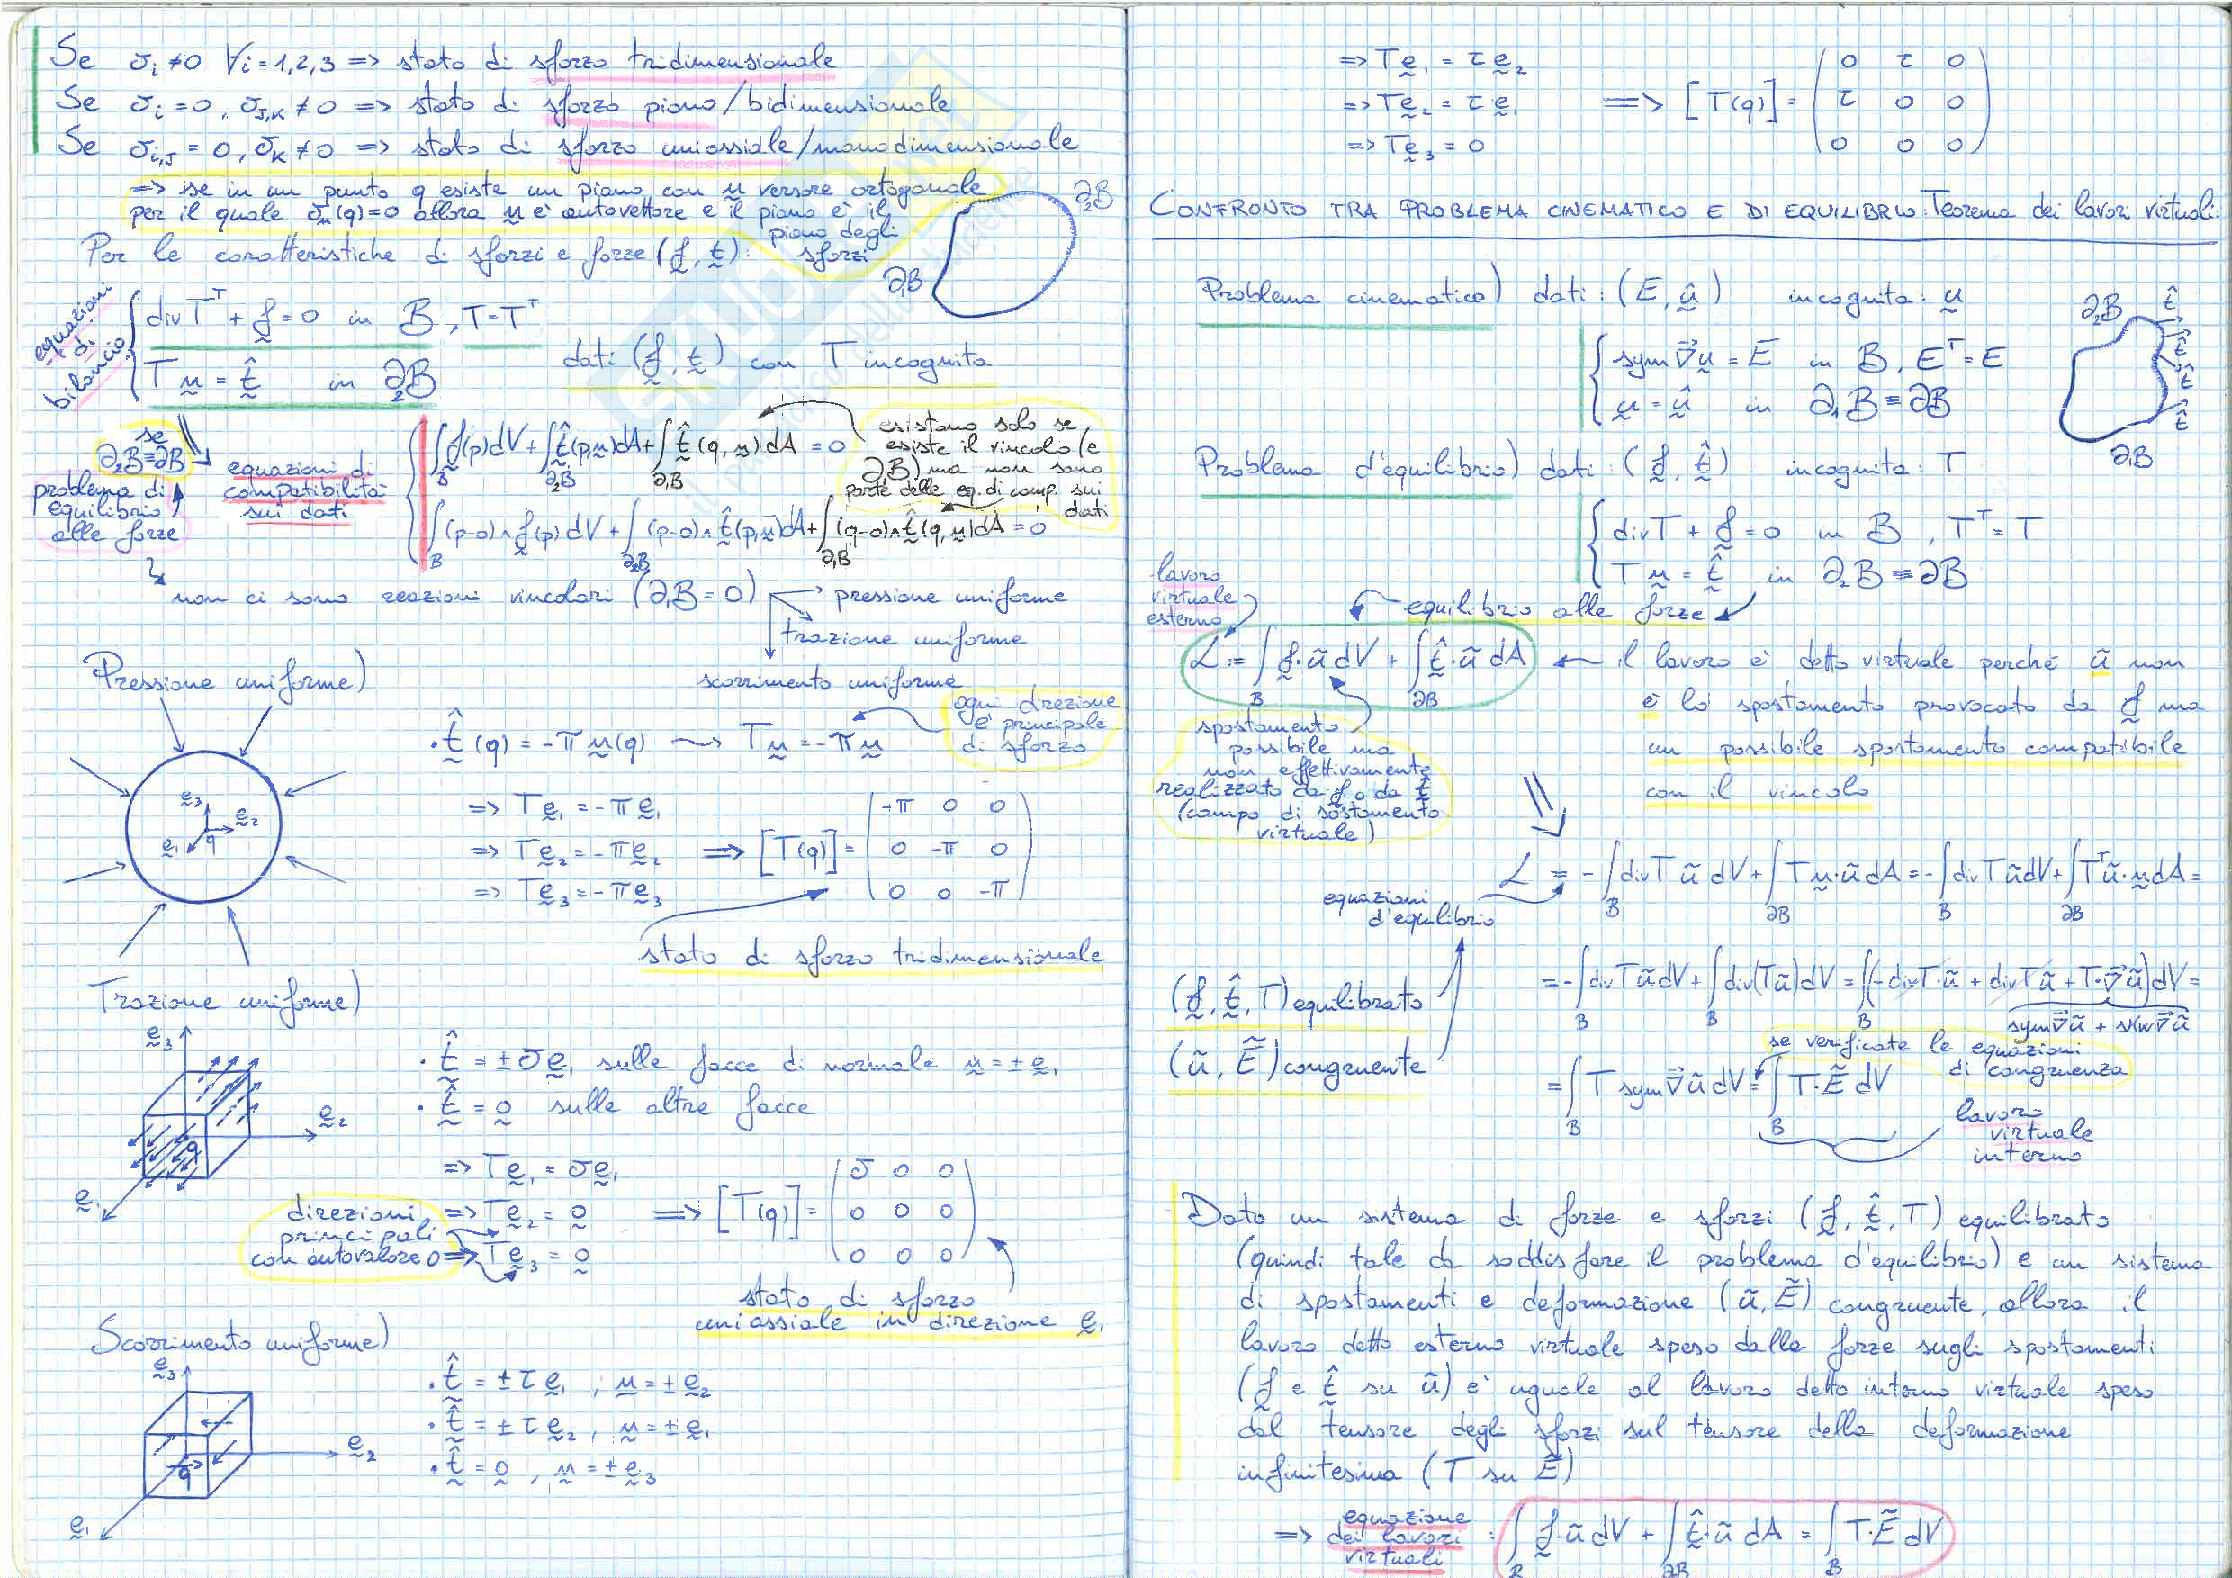 Se σᵢ ≠ 0 ∀i = 1,2,3 => stato di sforzo tridimensionale
Se σᵢ = 0, σ_J,K ≠ 0 => stato di sforzo piano/bidimensionale
Se σᵢ,J = 0, σ_K ≠ 0 => stato di sforzo uniassiale/monodimensionale
=> se in un punto q esiste un piano con n versore ortogonale
per il quale σn(q)=0 allora n è autovettore e il piano è il
piano degli
sforzi
Per le caratteristiche di sforzi e forze (f, t):
∂₂B
∂₁B
equazioni di bilancio
div Tᵀ + f = 0 in B, T = Tᵀ
T n = t̂ in ∂₂B
dati (f, t̂) con T incognita
se
∂₂B≡∂B
problema di
equilibrio
alle forze
equazioni di
compatibilità
sui dati
∫_B f(p)dV + ∫_∂₂B t̂(p,n)dA + ∫_∂₁B t̂(q,n)dA = 0
∫_B (p-o)∧f(p)dV + ∫_∂₂B (p-o)∧t̂(p,n)dA + ∫_∂₁B (q-o)∧t̂(q,n)dA = 0
esistono solo se
esiste il vincolo (e
∂₁B) ma non sono
parte delle eq. di comp. sui
dati
non ci sono reazioni vincolari (∂₁B = 0)
pressione uniforme
trazione uniforme
scorrimento uniforme
Pressione uniforme)
e₃ e₂ e₁ q
· t̂(q) = -π n(q) ~> T n = -π n
ogni direzione
è principale
di sforzo
=> T e₁ = -π e₁
=> T e₂ = -π e₂ => [T(q)] =
=> T e₃ = -π e₃
-π 0 0
0 -π 0
0 0 -π
stato di sforzo tridimensionale
Trazione uniforme)
e₃
e₂
q
e₁
· t̂ = ±σ e₁ sulle facce di normale n = ± e₁
· t̂ = 0 sulle altre facce
=> T e₁ = σ e₁
=> T e₂ = 0 => [T(q)] =
=> T e₃ = 0
σ 0 0
0 0 0
0 0 0
direzioni
principali
con autovalore 0
stato di sforzo
uniassiale in direzione e₁
Scorrimento uniforme)
e₃
e₂
q
e₁
· t̂ = ±τ e₁ ; n = ± e₂
· t̂ = ±τ e₂, n = ± e₁
· t̂ = 0, n = ± e₃
=> T e₁ = τ e₂
=> T e₂ = τ e₁ => [T(q)] =
=> T e₃ = 0
0 τ 0
τ 0 0
0 0 0
CONFRONTO TRA PROBLEMA CINEMATICO E DI EQUILIBRIO: Teorema dei lavori virtuali:
Problema cinematico) dati: (E, û) incognita: u
sym∇u = E in B, Eᵀ = E
u = û in ∂₁B ≡ ∂B
∂₂B t̂
t̂
t̂
t̂
∂₁B
Problema d'equilibrio) dati: (f, t̂) incognita: T
div T + f = 0 in B, Tᵀ = T
T n = t̂ in ∂₂B ≡ ∂B
lavoro
virtuale
esterno
equilibrio alle forze
L := ∫_B f·ũ dV + ∫_∂B t̂·ũ dA
il lavoro è detto virtuale perché ũ non
è lo spostamento provocato da f ma
un possibile spostamento compatibile
con il vincolo
spostamento
possibile ma
non effettivamente
realizzato da f o da t̂
(campo di sostamento
virtuale)
equazioni
d'equilibrio
L = -∫_B div T ũ dV + ∫_∂B T n·ũ dA = -∫_B div T ũ dV + ∫_∂B Tᵀũ·n dA =
= -∫_B div T ũ dV + ∫_B div(Tũ)dV = ∫_B (-div T·ũ + div T ũ + T·∇ũ)dV =
sym∇ũ + skw∇ũ
(f, t̂, T) equilibrato
(ũ, Ẽ) congruente
se verificate le equazioni
di congruenza
= ∫_B T sym∇ũ dV = ∫_B T·Ẽ dV
lavoro
virtuale
interno
Dato un sistema di forze e sforzi (f, t̂, T) equilibrato
(quindi tale da soddisfare il problema d'equilibrio) e un sistema
di spostamenti e deformazione (ũ, Ẽ) congruente, allora il
lavoro detto esterno virtuale speso dalle forze sugli spostamenti
(f e t̂ su ũ) è uguale al lavoro detto interno virtuale speso
dal tensore degli sforzi sul tensore della deformazione
infinitesima (T su Ẽ)
=> equazione
dei lavori
virtuali
: ∫_B f·ũ dV + ∫_∂B t̂·ũ dA = ∫_B T·Ẽ dV